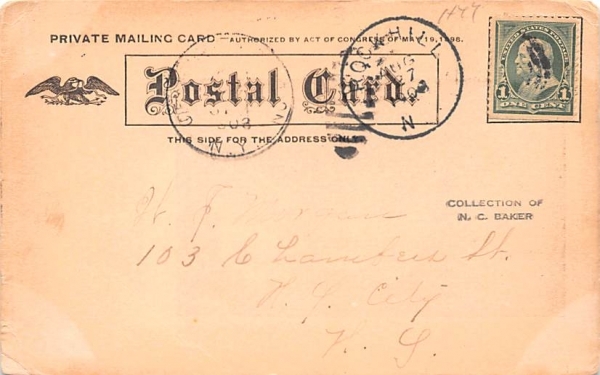 1477
PRIVATE MAILING CARD AUTHORIZED BY ACT OF CONGRESS OF MAY 19, 1898.
Postal Card.
THIS SIDE FOR THE ADDRESS ONLY.
AUG
7
N
UNITED STATES POSTAGE
1 1
ONE CENT
COLLECTION OF
N. C. BAKER
W. F.
103 Chambers St.
N. Y. City
N. Y.